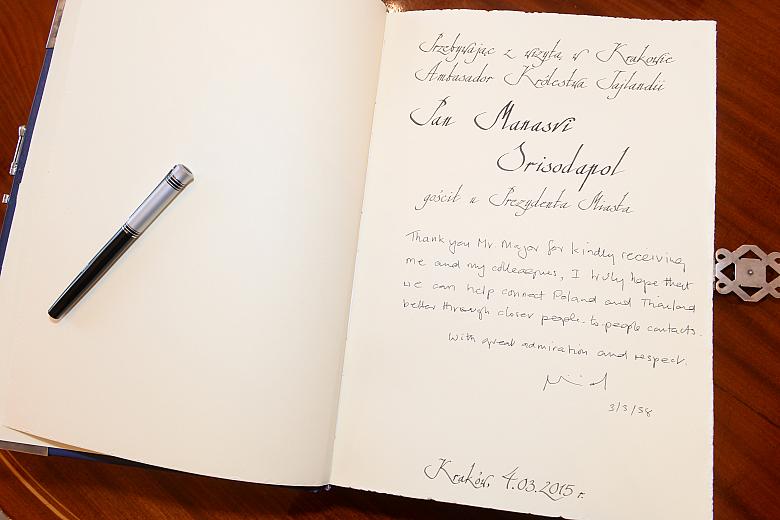 Przebywając z wizytą w Krakowie
Ambasador Królestwa Tajlandii
Pan Manasvi
Srisodapol
gościł u Prezydenta Miasta
Thank you Mr. Mayor for kindly receiving
me and my colleagues, I truly hope that
we can help connect Poland and Thailand
better through closer people-to-people contacts.
With great admiration and respect.
3/3/58
Kraków, 4.03.2015 r.